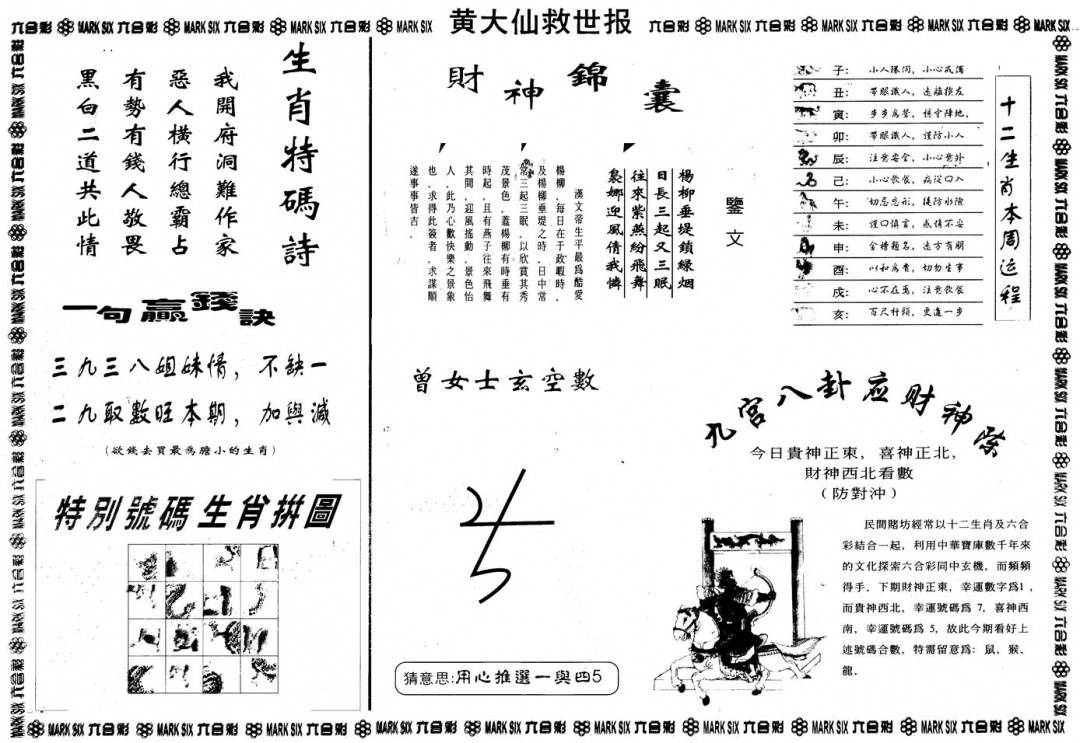 六合彩 MARK SIX 六合彩 MARK SIX 六合彩 MARK SIX 六合彩 MARK SIX
黄大仙救世报
六合彩 MARK SIX 六合彩 MARK SIX 六合彩 MARK SIX 六合彩 MARK SIX
生肖特碼詩
我開府洞難作家
惡人橫行總霸占
有勢有錢人敬畏
黑白二道共此情
一句贏錢訣
三九三八姐妹情，不缺一
二九取數旺本期，加與減
（欲錢去買最為膽小的生肖）
特別號碼生肖拼圖
財神錦囊
鑒文
楊柳垂堤鎖綠烟
日長三起又三眠
往來紫燕紛飛舞
裊娜迎風倩我憐
漢文帝生平最爲酷愛
楊柳，每日在于政暇時，
及楊柳垂堤之時，日中常
常三起三眠，以欣賞其秀
茂景色，蓋楊柳有時垂有
時起，且有燕子往來飛舞
其間，迎風搖動，景色怡
人，此乃心歡快樂之景象
也，求得此簽者，求謀順
遂事事皆吉。
曾女士玄空數
猜意思:用心推選一與四5
十二生肖本周运程
子：小人環伺，小心戒濁
丑：帶眼識人，遠離損友
寅：步步為營，
卯：帶眼識人，謹防小人
辰：注意安全，小心意外
己：小心飲食，病從口入
午：切忌忘形，提防水險
未：謹口慎言，感情不妥
申：金榜題名，遠方有朋
酉：以和為貴，切勿生事
戌：心不在焉，注意飲食
亥：百尺竿頭，更進一步
九宫八卦应财神
今日貴神正東，喜神正北，
財神西北看數
（防對沖）
民間賭坊經常以十二生肖及六合
彩結合一起，利用中華寶庫數千年來
的文化探索六合彩同中玄機，而頻頻
得手．下期財神正東，幸運數字爲1，
而貴神西北，幸運號碼爲 7，喜神西
南，幸運號碼爲 5，故此今期看好上
述號碼合數，特需留意爲：鼠、猴、
龍．
MARK SIX 六合彩 MARK SIX 六合彩 MARK SIX 六合彩 MARK SIX 六合彩 MARK SIX 六合彩 MARK SIX 六合彩 MARK SIX 六合彩 MARK SIX 六合彩 MARK SIX 六合彩 MARK SIX 六合彩